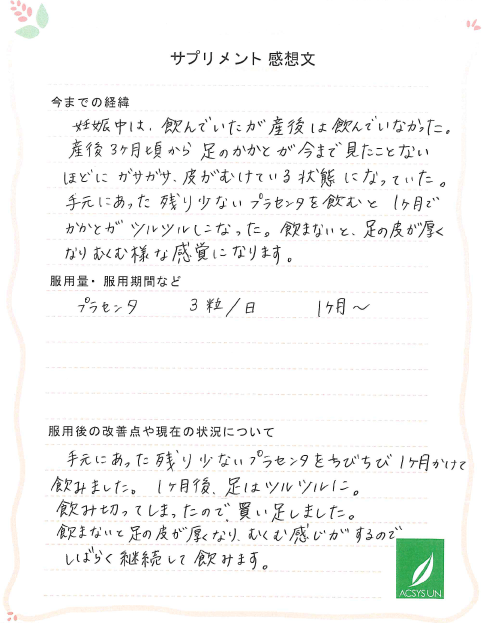 サプリメント 感想文
今までの経緯
妊娠中は、飲んでいたが産後は飲んでいなかった。
産後3ヶ月頃から足のかかとが今まで見たことない
ほどにガサガサ、皮がむけている状態になっていた。
手元にあった残り少ないプラセンタを飲むと1ヶ月で
かかとがツルツルになった。飲まないと、足の皮が厚く
なりむくむ様な感覚になります。
服用量・服用期間など
プラセンタ 3粒/日 1ヶ月〜
服用後の改善点や現在の状況について
手元にあった残り少ないプラセンタをちびちび1ヶ月かけて
飲みました。1ヶ月後、足はツルツルに。
飲み切ってしまったので、買い足しました。
飲まないと足の皮が厚くなり、むくむ感じがするので
しばらく継続して飲みます。
ACSYSUN